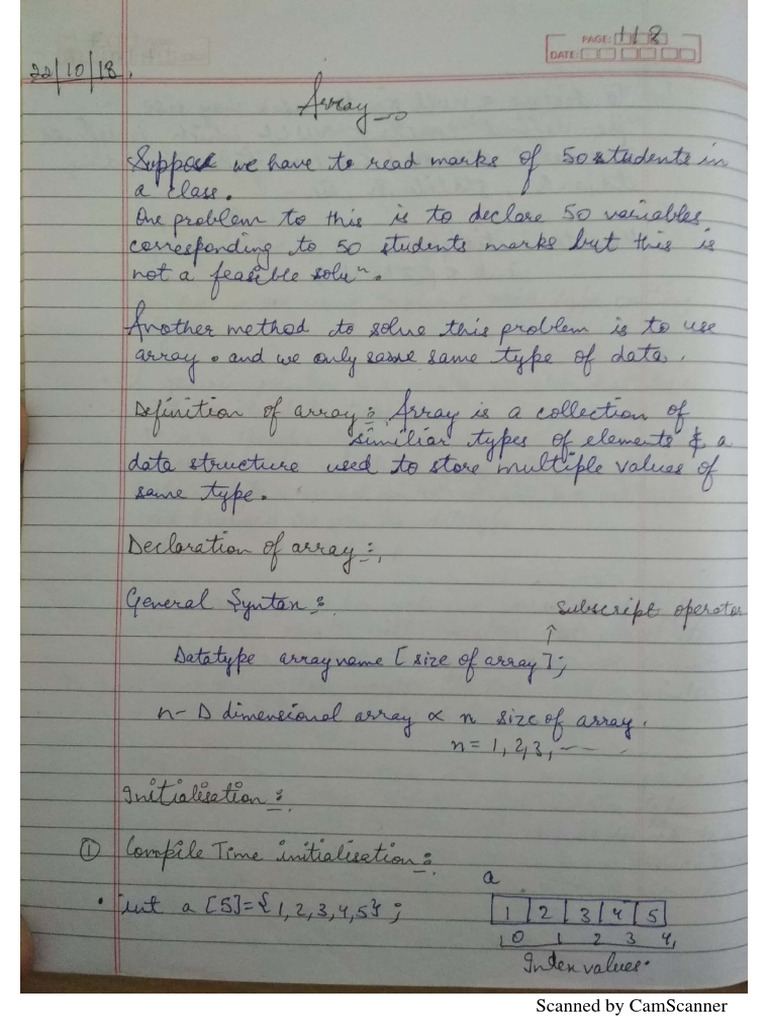 PAGE: 118
DATE:
22/10/18.
Array
Suppose we have to read marks of 50 students in
a class.
One problem to this is to declare 50 variables
corresponding to 50 students marks but this is
not a feasible soluⁿ.
Another method to solve this problem is to use
array. and we only same type of data.
Definition of array: Array is a collection of
similiar types of elements & a
data structure used to store multiple values of
same type.
Declaration of array :-
General Syntax :-
subscript operator
↑
Datatype arrayname [size of array];
n-D dimensional array ∝ n size of array.
n = 1, 2, 3, ----
Initialisation :-
① Compile Time initialisation :-
a
• int a [5] = {1, 2, 3, 4, 5} ;
1 2 3 4 5
0 1 2 3 4
Index values.
Scanned by CamScanner